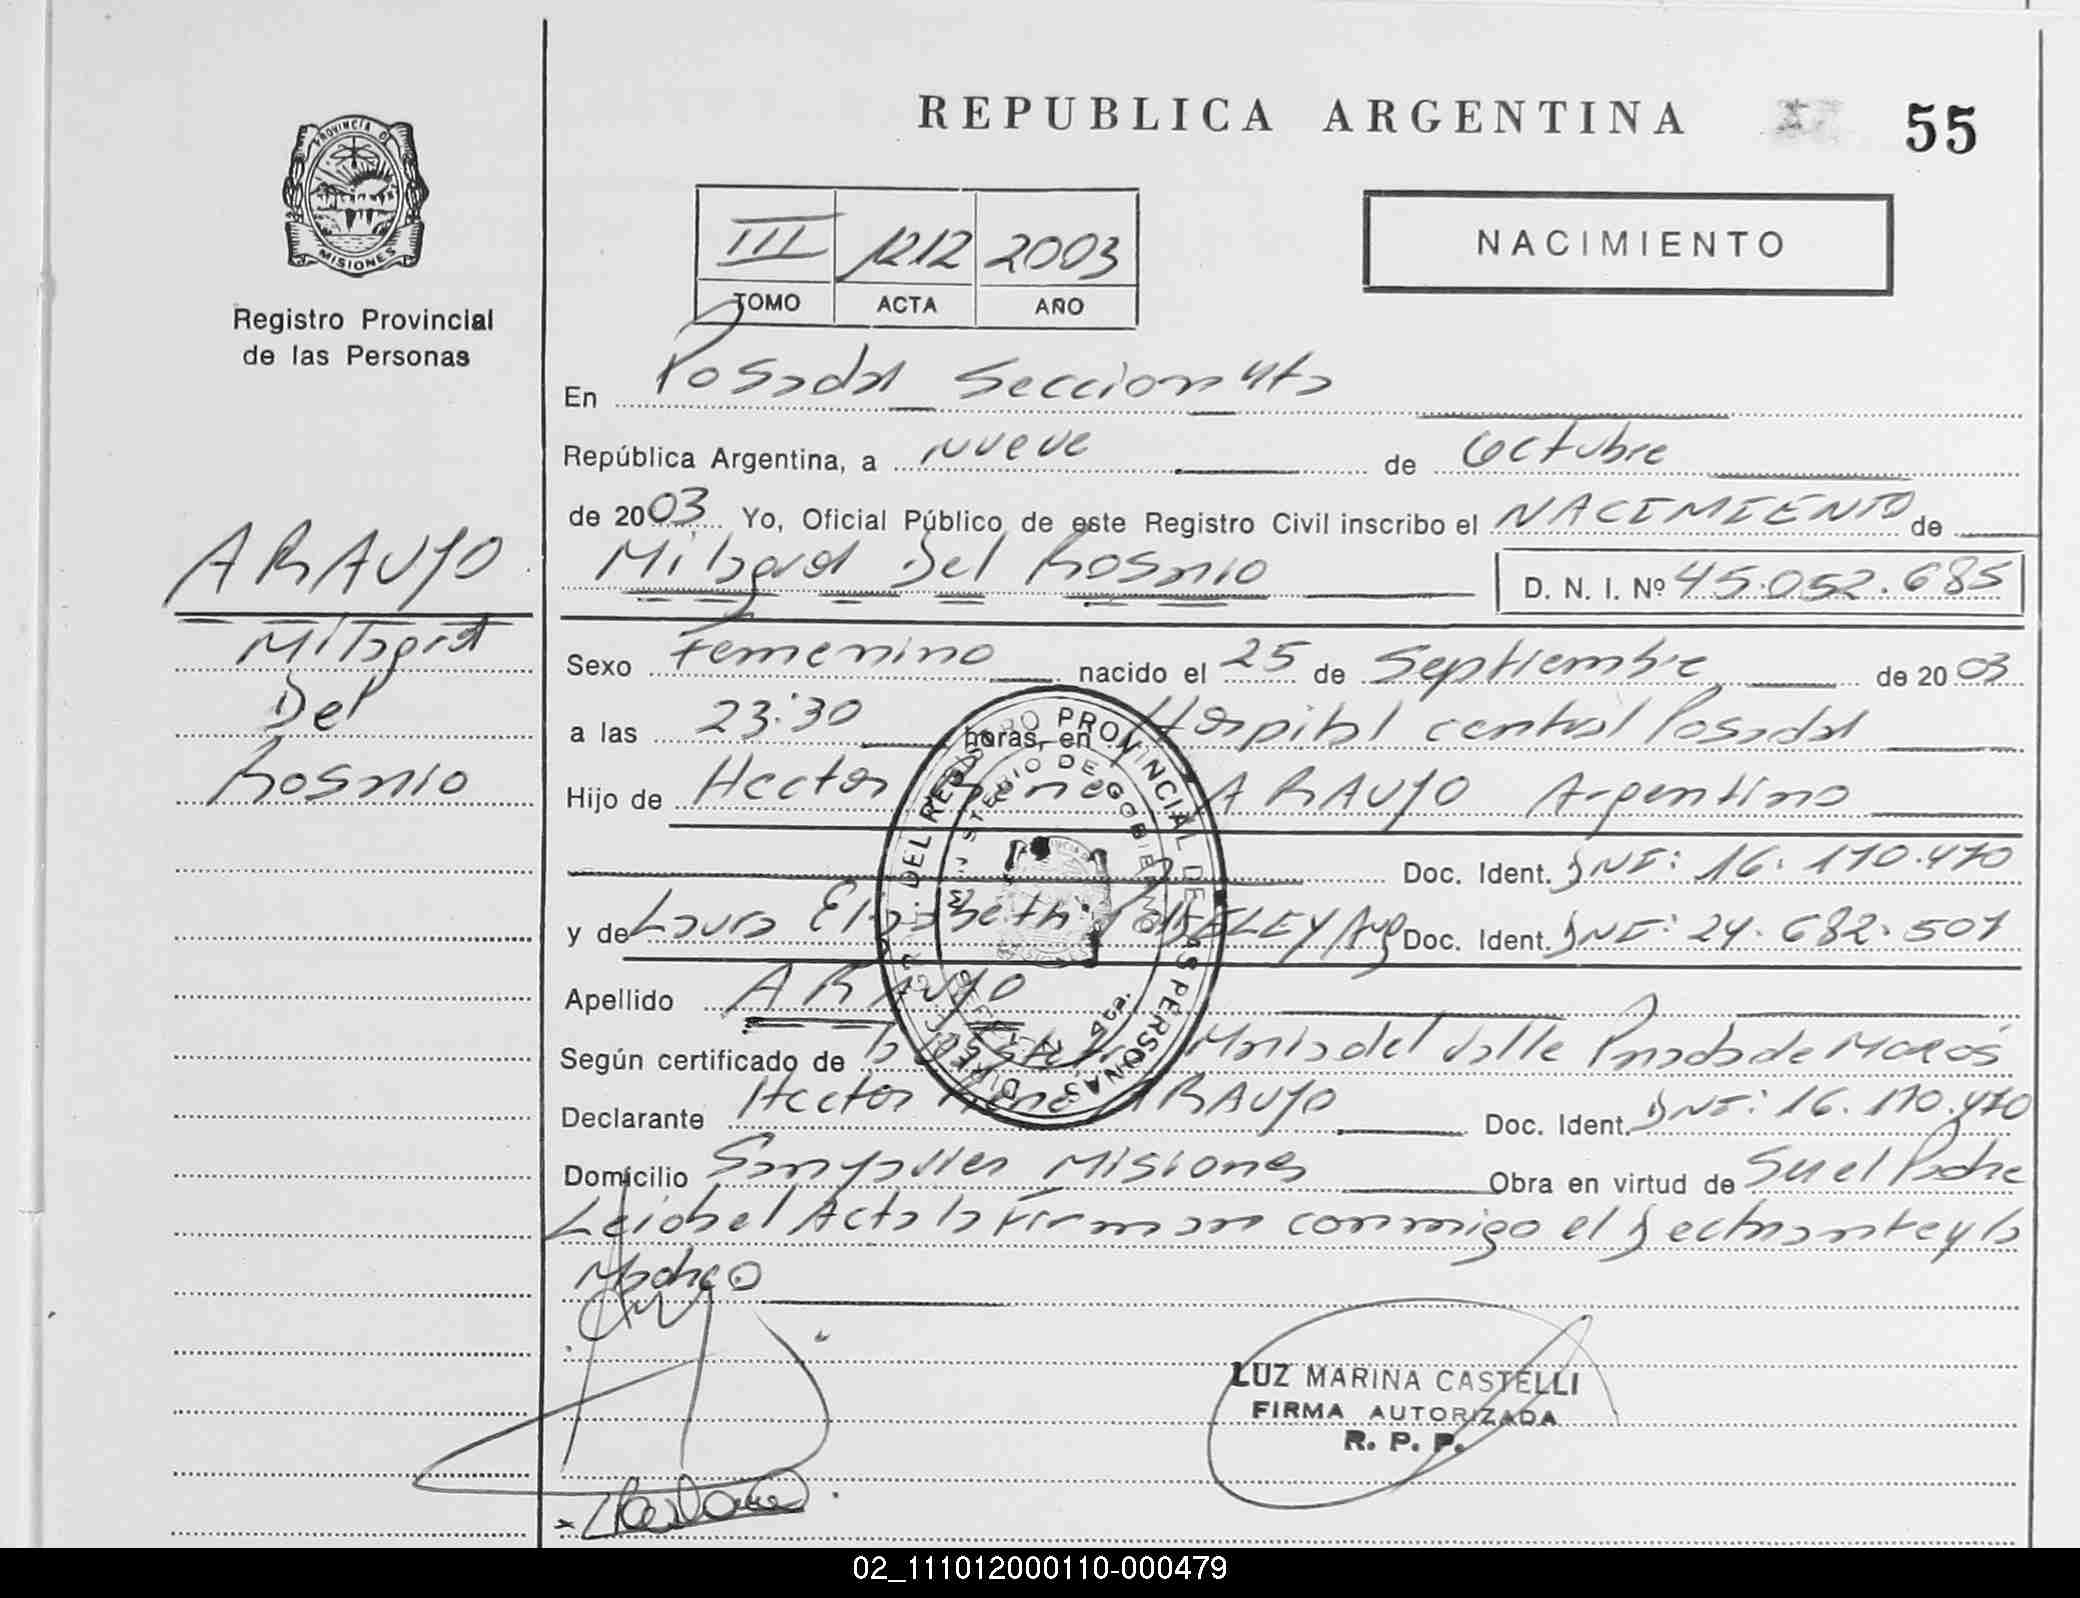 REPUBLICA ARGENTINA 55
PROVINCIA D
MISIONES
Registro Provincial
de las Personas
III 1212 2003
TOMO ACTA AÑO
NACIMIENTO
En Posadas Seccion 4ta
República Argentina, a nueve de Octubre
de 2003 Yo, Oficial Público de este Registro Civil inscribo el NACIMIENTO de
Milagros Del Rosario D. N. I. Nº 45.052.685
ARAUJO
Milagros
Del
Rosario
Sexo Femenino nacido el 25 de Septiembre de 2003
a las 23:30 horas, en Hospital central Posadas
Hijo de Hector Rene ARAUJO Argentino
Doc. Ident. DNI: 16.170.470
y de Laura Elisabeth Doc. Ident. DNI: 24.682.501
Apellido ARAUJO
Según certificado de la Maria del Valle Prada de
Declarante Hector Rene ARAUJO Doc. Ident. DNI: 16.170.470
Domicilio Misiones Obra en virtud de Ser el Padre
Leida el Acta la Firman conmigo el Declarante y la
Madre
DIRECC. GRAL. DEL REGISTRO PROVINCIAL DE LAS PERSONAS
MINISTERIO DE GOBIERNO
LUZ MARINA CASTELLI
FIRMA AUTORIZADA
R. P. P.
02_111012000110-000479